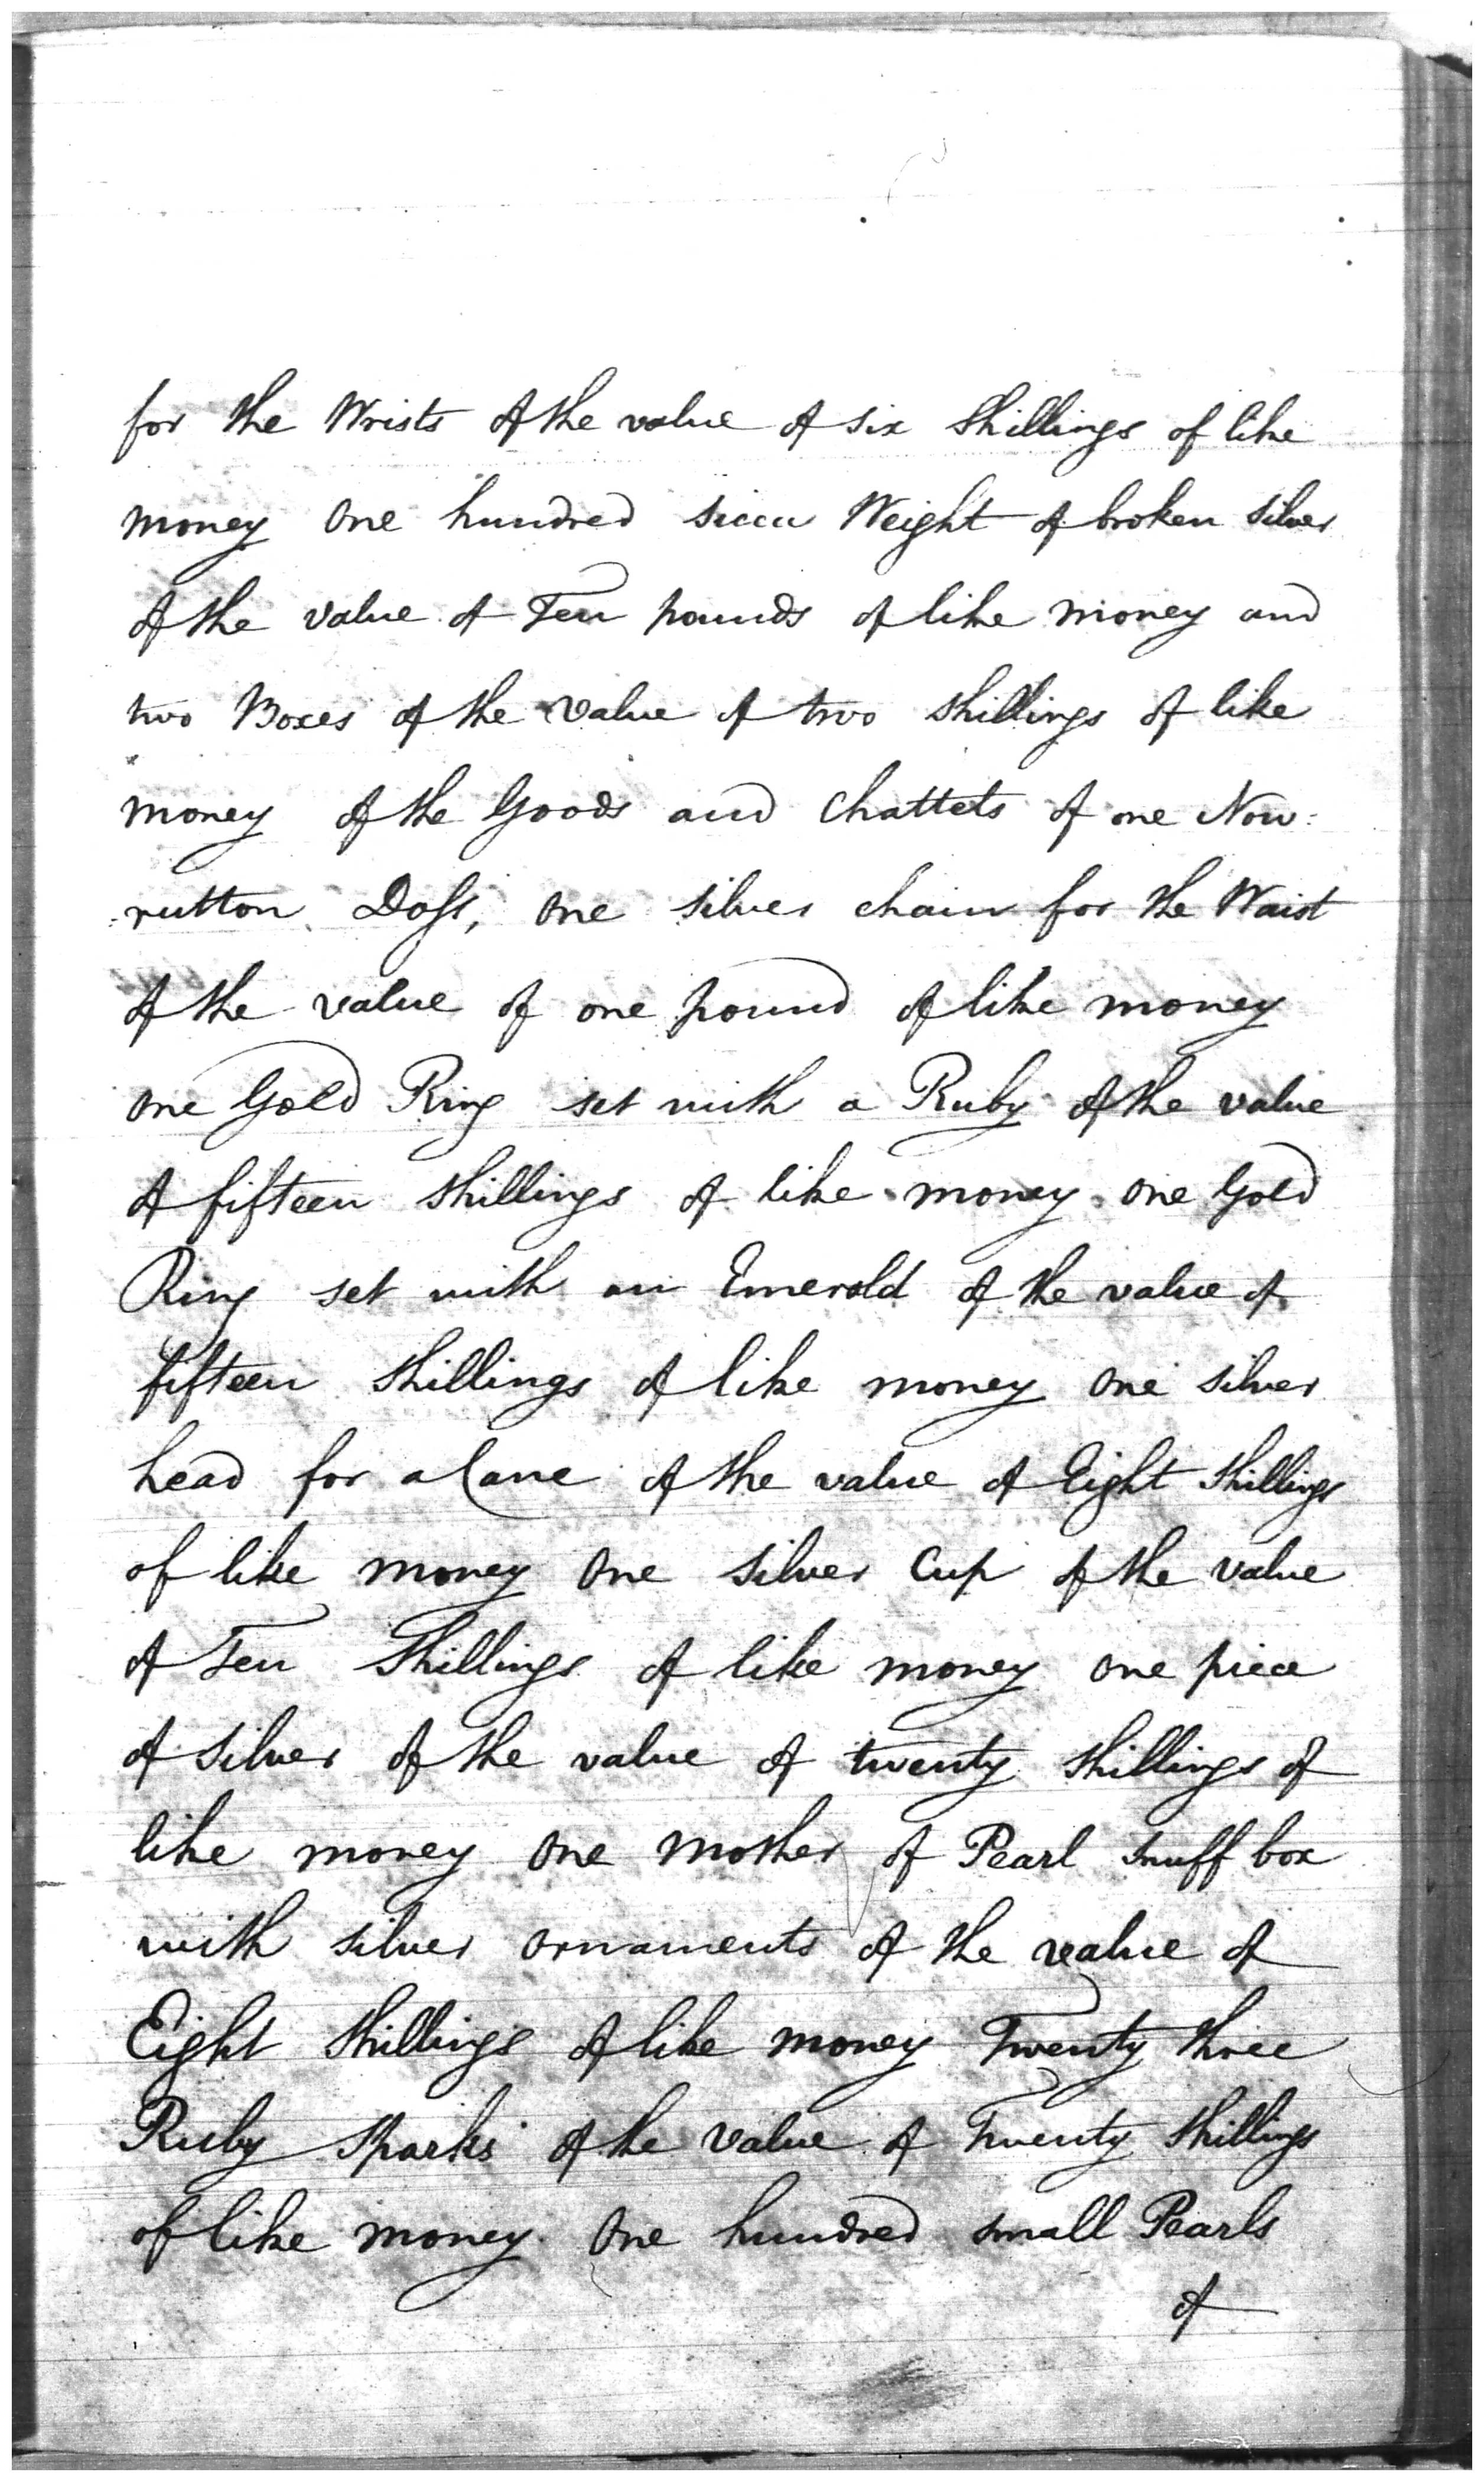 for the Wrists of the value of six Shillings of like
money one hundred sicca Weight of broken silver
of the value of Ten pounds of like money and
two Boxes of the value of two shillings of like
money of the Goods and Chattels of one Now:
:rutton Doss, one silver chain for the Waist
of the value of one pound of like money
one Gold Ring set with a Ruby of the value
of fifteen shillings of like money one Gold
Ring set with an Emerald of the value of
fifteen shillings of like money one silver
head for a Cane of the value of Eight Shillings
of like money one silver Cup of the value
of Ten Shillings of like money one piece
of silver of the value of twenty shillings of
like money one mother of Pearl snuff box
with silver ornaments of the value of
Eight shillings of like money Twenty three
Ruby sparks of the value of Twenty shillings
of like money. One hundred small Pearls
of